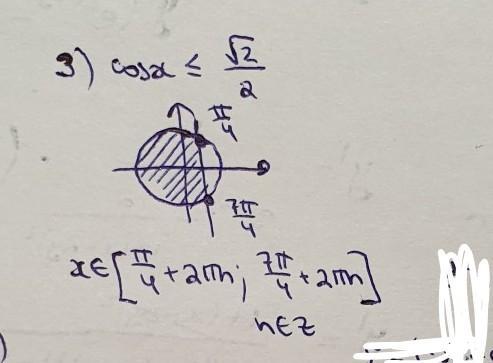 3) cosx ≤ √2/2
π/4
7π/4
x∈[π/4+2πn; 7π/4+2πn]
n∈Z